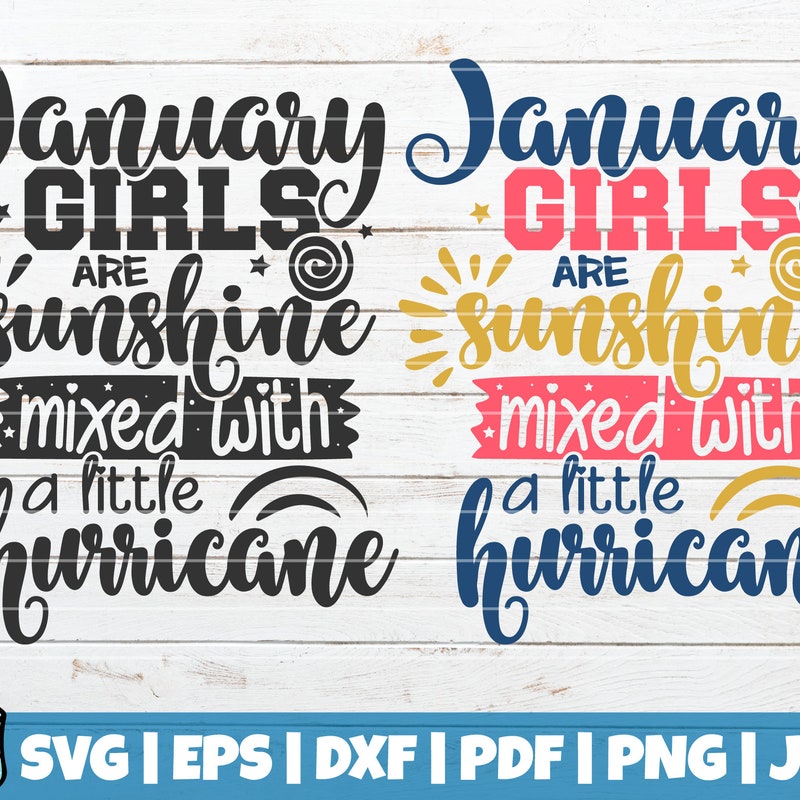 January
GIRLS
ARE
sunshine
mixed with
a little
hurricane
Januar
GIRLS
ARE
sunshin
mixed with
a little
hurrican
SVG | EPS | DXF | PDF | PNG | J